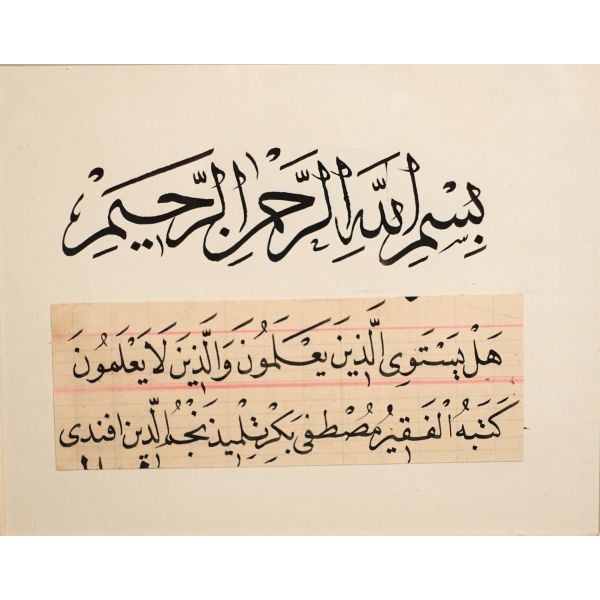 بِسْمِ اللهِ الرَّحْمٰنِ الرَّحِيمِ
هَلْ يَسْتَوِى الَّذِينَ يَعْلَمُونَ وَالَّذِينَ لَا يَعْلَمُونَ
كَتَبَهُ الْفَقِيرُ مُصْطَفٰى بَكِرْ تِلْمِيذِ نَجْمُ الدِّين افندى